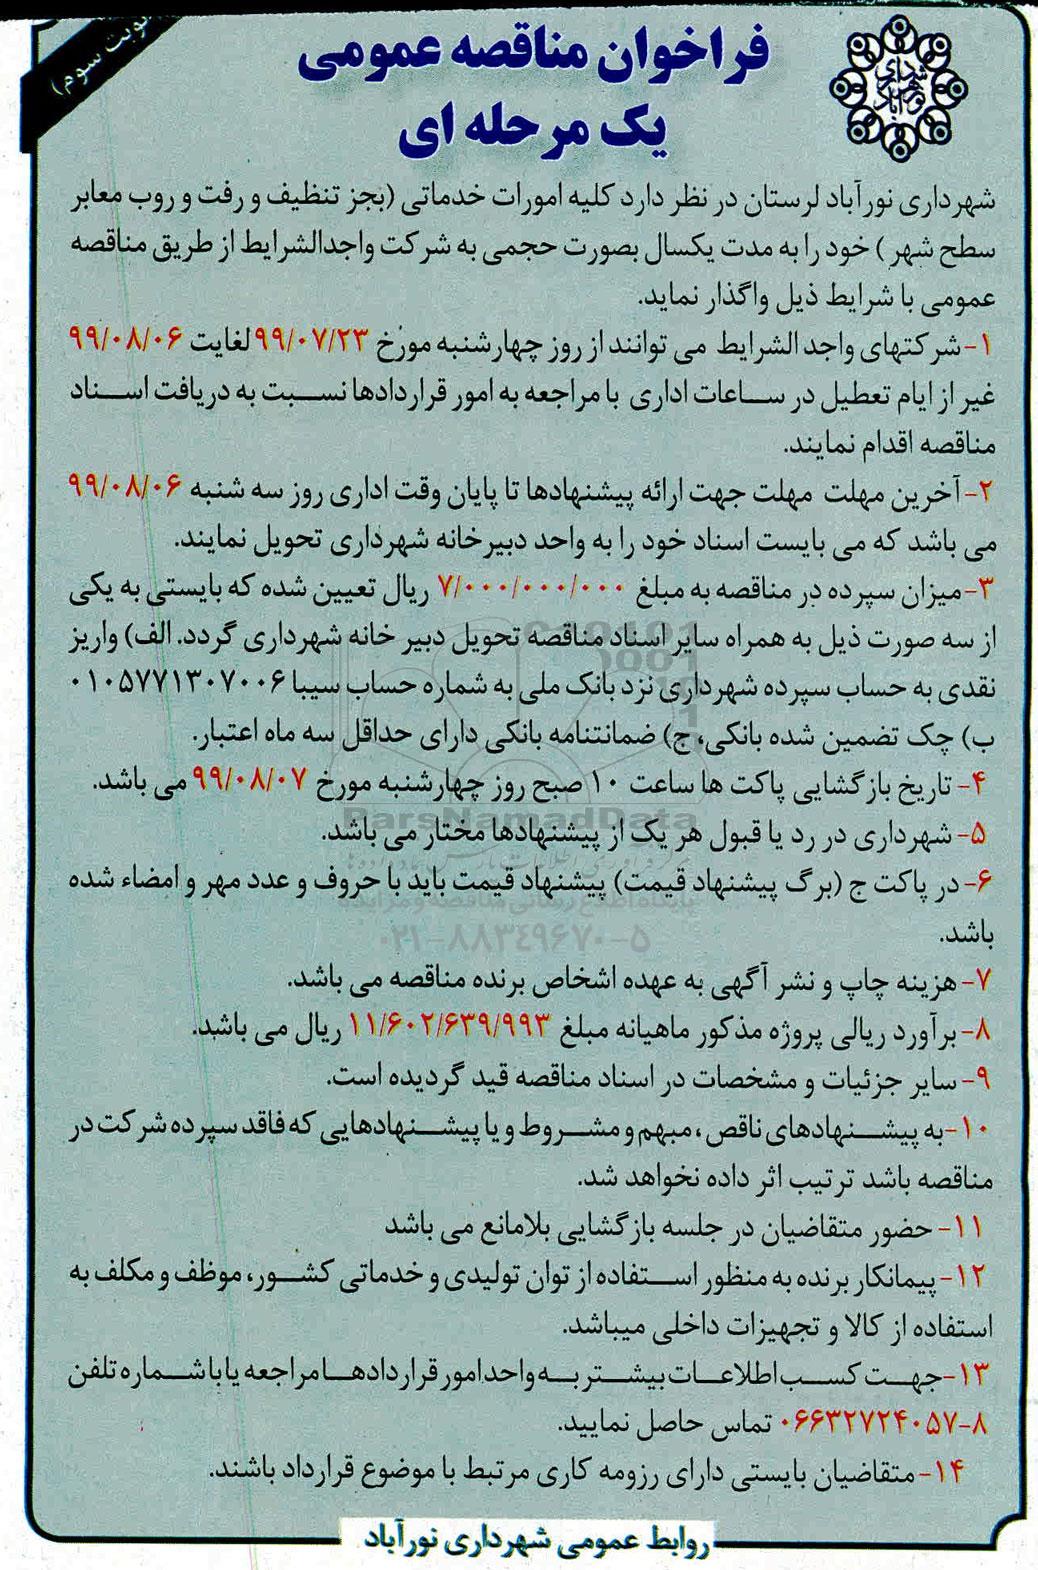 نوبت سوم)
شهرداری نورآباد
فراخوان مناقصه عمومی
یک مرحله ای
شهرداری نورآباد لرستان در نظر دارد کلیه امورات خدماتی (بجز تنظیف و رفت و روب معابر
سطح شهر ) خود را به مدت یکسال بصورت حجمی به شرکت واجدالشرایط از طریق مناقصه
عمومی با شرایط ذیل واگذار نماید.
۱- شرکتهای واجد الشرایط می توانند از روز چهارشنبه مورخ ۹۹/۰۷/۲۳ لغایت ۹۹/۰۸/۰۶
غیر از ایام تعطیل در ساعات اداری با مراجعه به امور قراردادها نسبت به دریافت اسناد
مناقصه اقدام نمایند.
۲- آخرین مهلت مهلت جهت ارائه پیشنهادها تا پایان وقت اداری روز سه شنبه ۹۹/۰۸/۰۶
می باشد که می بایست اسناد خود را به واحد دبیرخانه شهرداری تحویل نمایند.
۳- میزان سپرده در مناقصه به مبلغ ۷/۰۰۰/۰۰۰/۰۰۰ ریال تعیین شده که بایستی به یکی
از سه صورت ذیل به همراه سایر اسناد مناقصه تحویل دبیر خانه شهرداری گردد. الف) واریز
نقدی به حساب سپرده شهرداری نزد بانک ملی به شماره حساب سیبا ۰۱۰۵۷۷۱۳۰۷۰۰۶
ب) چک تضمین شده بانکی، ج) ضمانتنامه بانکی دارای حداقل سه ماه اعتبار.
۴- تاریخ بازگشایی پاکت ها ساعت ۱۰ صبح روز چهارشنبه مورخ ۹۹/۰۸/۰۷ می باشد.
ParsNamadData
۵- شهرداری در رد یا قبول هر یک از پیشنهادها مختار می باشد.
۶- در پاکت ج (برگ پیشنهاد قیمت) پیشنهاد قیمت باید با حروف و عدد مهر و امضاء شده
پایگاه اطلاع رسانی مناقصه و مزایده
باشد.
۰۲۱-۸۸۳۴۹۶۷۰-۵
۷- هزینه چاپ و نشر آگهی به عهده اشخاص برنده مناقصه می باشد.
۸- برآورد ریالی پروژه مذکور ماهیانه مبلغ ۱۱/۶۰۲/۶۳۹/۹۹۳ ریال می باشد.
۹- سایر جزئیات و مشخصات در اسناد مناقصه قید گردیده است.
۱۰- به پیشنهادهای ناقص، مبهم و مشروط و یا پیشنهادهایی که فاقد سپرده شرکت در
مناقصه باشد ترتیب اثر داده نخواهد شد.
۱۱- حضور متقاضیان در جلسه بازگشایی بلامانع می باشد
۱۲- پیمانکار برنده به منظور استفاده از توان تولیدی و خدماتی کشور، موظف و مکلف به
استفاده از کالا و تجهیزات داخلی میباشد.
۱۳- جهت کسب اطلاعات بیشتر به واحد امور قراردادها مراجعه یا با شماره تلفن
۰۶۶۳۲۷۲۴۰۵۷-۸ تماس حاصل نمایید.
۱۴- متقاضیان بایستی دارای رزومه کاری مرتبط با موضوع قرارداد باشند.
روابط عمومی شهرداری نورآباد